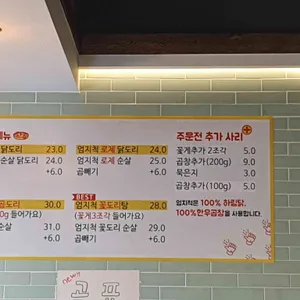 메뉴
닭도리 23.0
순살 닭도리 24.0
+6.0
곱도리 30.0
0g 들어가요)
순살 31.0
+6.0
엄지척 로제 닭도리 24.0
엄지척 로제 순살 25.0
곱빼기 +6.0
BEST
엄지척 꽃도리탕 28.0
(꽃게3조각 들어가요)
엄지척 꽃도리 순살 29.0
곱빼기 +6.0
주문전 추가 사리
꽃게추가 2조각 5.0
곱창추가(200g) 9.0
묵은지 3.0
곱창추가(100g) 5.0
엄지척은 100% 하림닭,
100%한우곱창을 사용합니다.
new!!